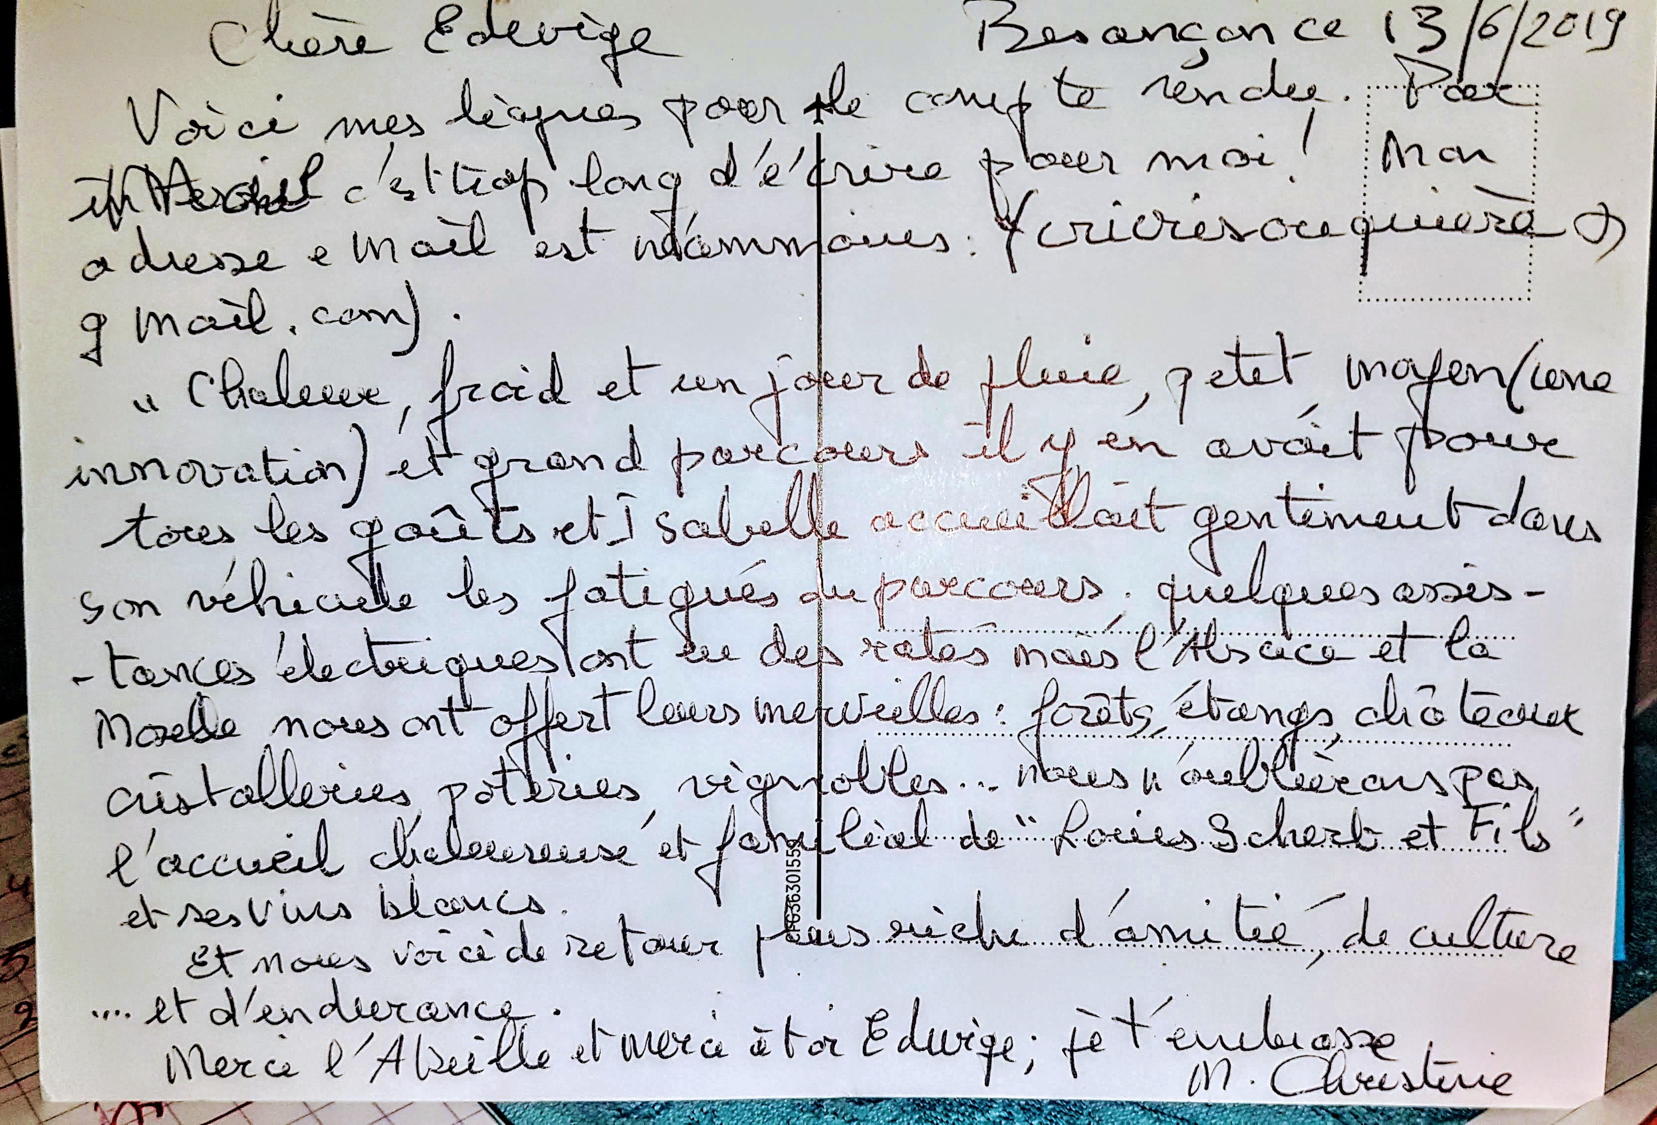 Chère Edwige Besançon ce 13/6/2019
Voici mes lignes pour le compte rendu. Par
c'est trop long d'écrire pour moi! Mon
adresse e mail est néanmoins: (cricrisouquière @
gmail.com).
"Chaleur, froid et un jour de pluie, petit moyen (une
innovation) et grand parcours il y en avait pour
tous les goûts et Isabelle accueillait gentiment dans
son véhicule les fatigués du parcours. quelques assis-
-tances électriques ont eu des ratés mais l'Alsace et la
Moselle nous ont offert leurs merveilles: forêts, étangs, châteaux
cristalleries, poteries, vignobles... nous n'oublierons pas
l'accueil chaleureux et familial de "Louis Scherb et Fils"
et ses vins blancs.
Et nous voici de retour plus riche d'amitié, de culture
.... et d'endurance.
Merci l'Abeille et merci à toi Edwige; je t'embrasse
M. Christine